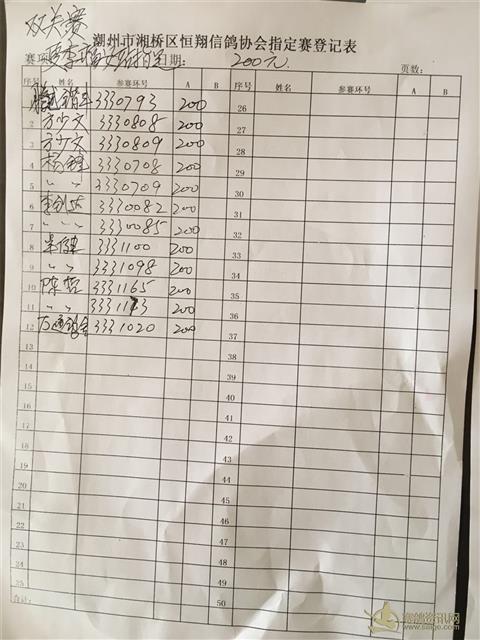 双关赛
潮州市湘桥区恒翔信鸽协会指定赛登记表
赛项 指定 日期: 200元 页数:
序号 姓名 参赛环号 A B 序号 姓名 参赛环号 A B
3330793 200 26
2 方少文 3330808 200 27
3 方少文 3330809 200 28
4 杨 3330708 200 29
5 〃 〃 3330709 200 30
6 李剑 3330082 200 31
7 〃 〃 3330085 200 32
8 3331100 200 33
9 〃 〃 3331098 200 34
10 陈哲 3331165 200 35
11 〃 〃 3331113 200 36
12 万通鸽舍 3331020 200 37
13 38
14 39
15 40
16 41
17 42
18 43
19 44
20 45
21 46
22 47
23 48
24 49
25 50
合计:
赛鸽资讯网
www.saige.com